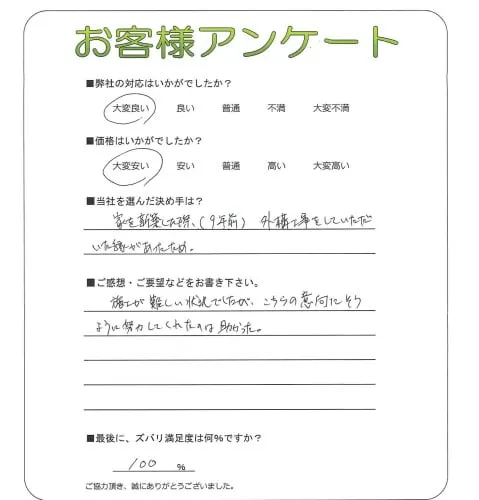 お客様アンケート
■弊社の対応はいかがでしたか？
大変良い 良い 普通 不満 大変不満
■価格はいかがでしたか？
大変安い 安い 普通 高い 大変高い
■当社を選んだ決め手は？
家を新築した際、(9年前) 外構工事をしていただ
いた縁があったため。
■ご感想・ご要望などをお書き下さい。
施工が難しい状況でしたが、こちらの意向にそう
ように努力してくれたのは助かった。
■最後に、ズバリ満足度は何%ですか？
100 %
ご協力頂き、誠にありがとうございました。